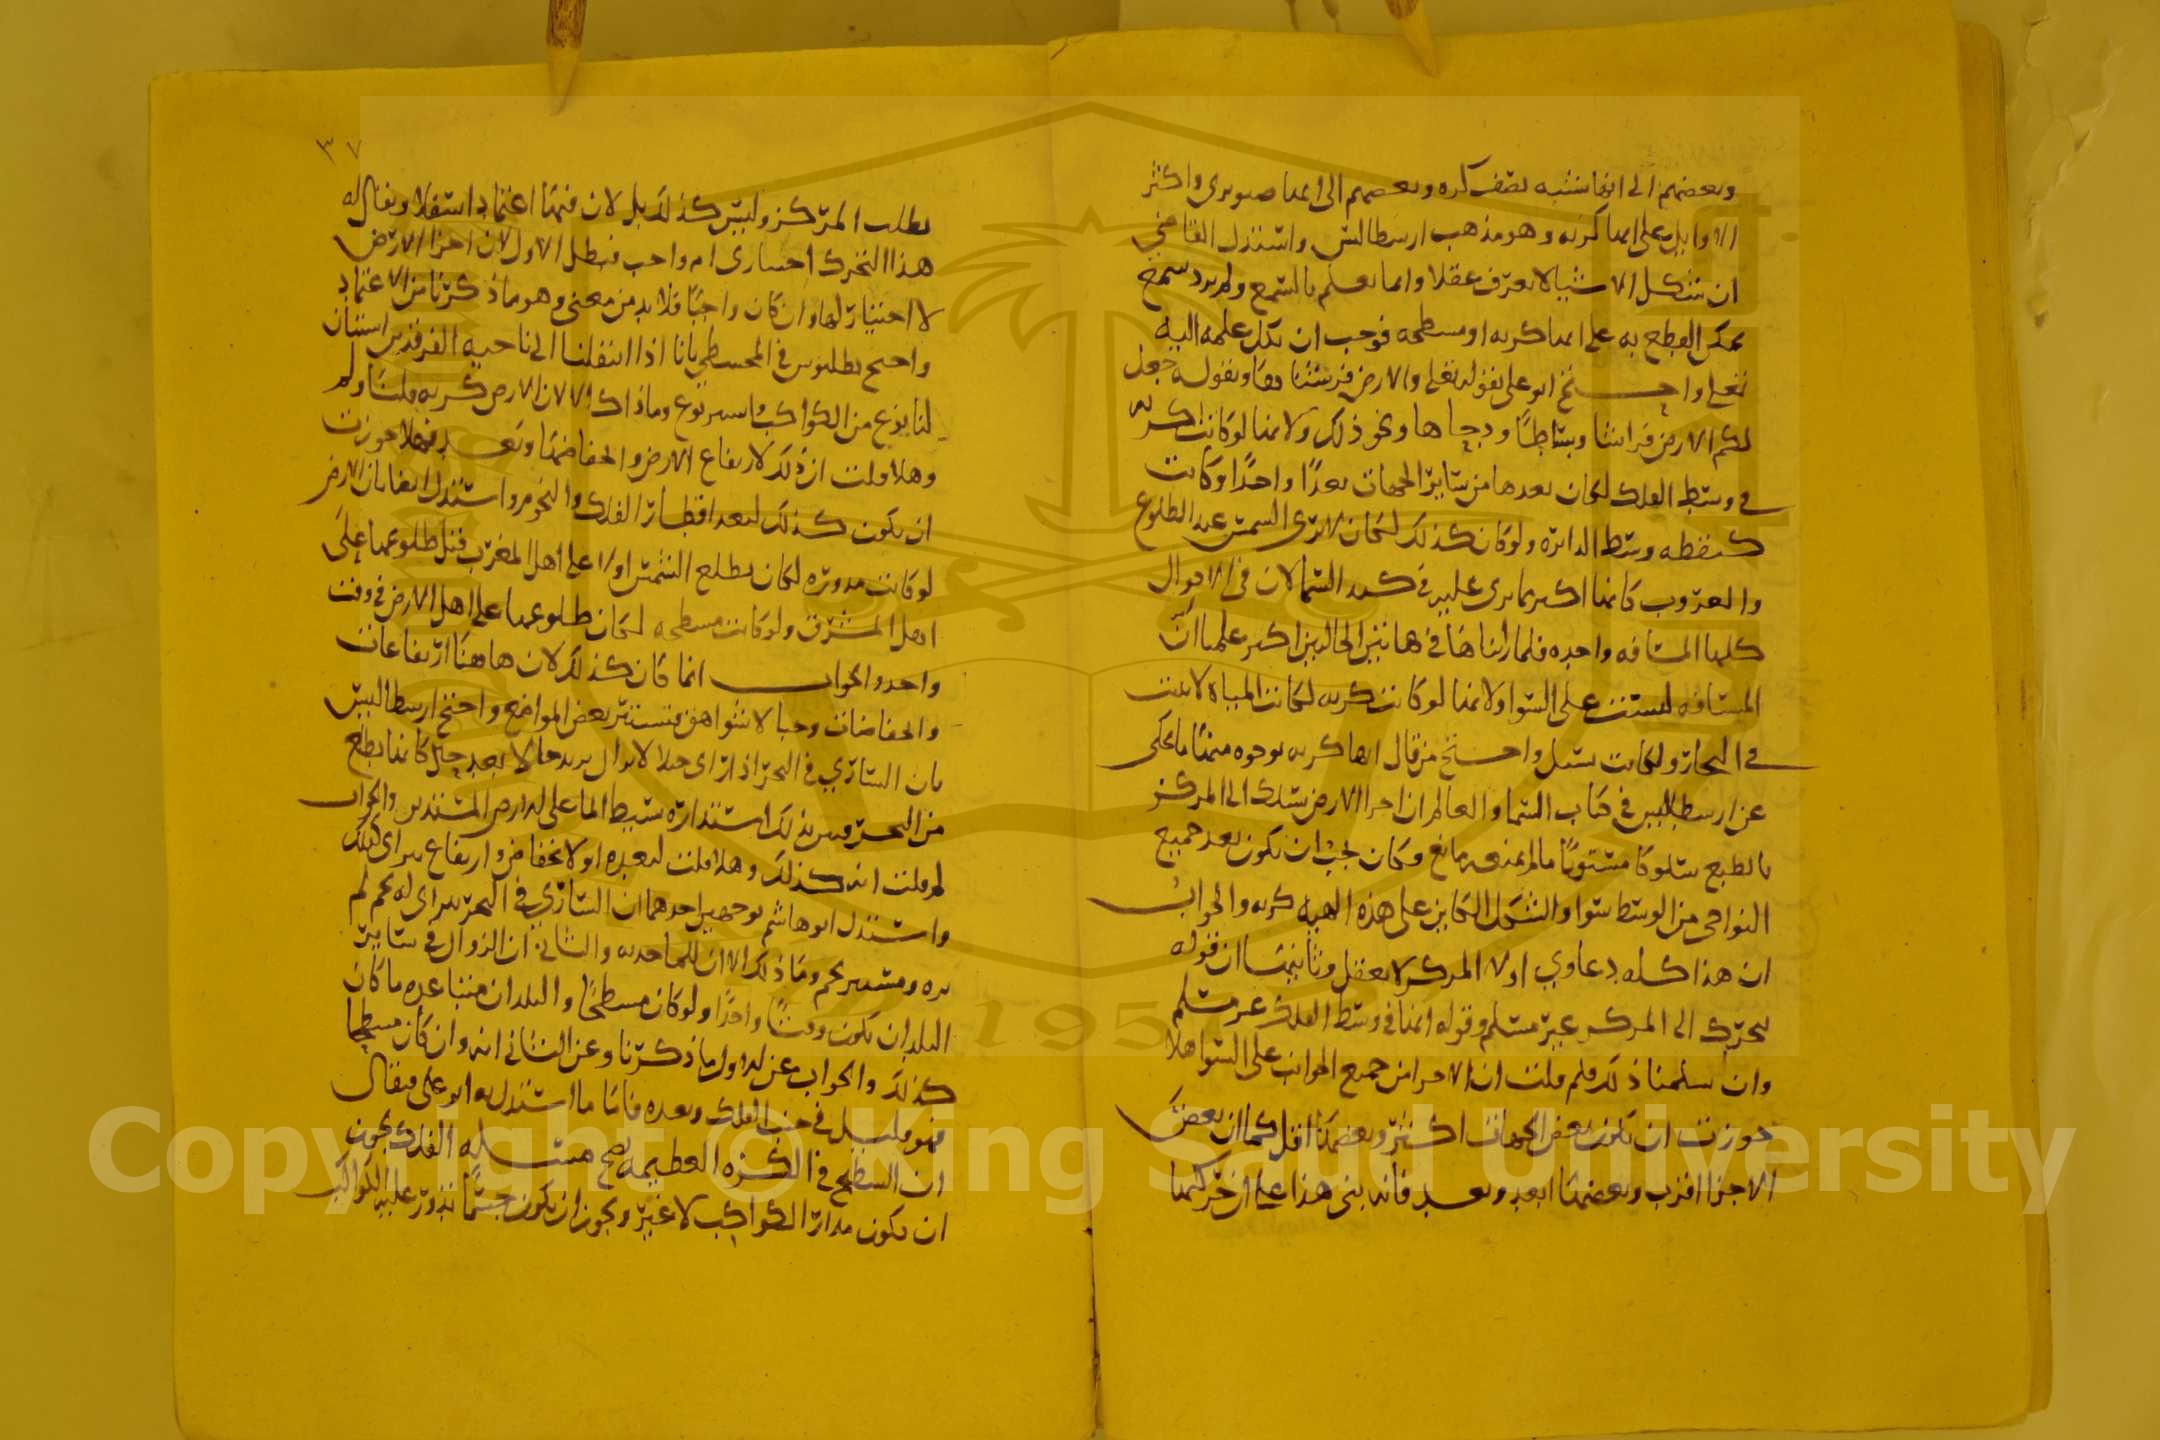 وبعضهم الى انها شبه نصف كره وبعضهم الى انها صنوبرى واكثر
الاوايل على انها كريه وهو مذهب ارسطاليس واستدل القاضي
ان شكل الاشيا لا يعرف عقلا وانما يعلم بالسمع ولم يرد سمع
يمكن القطع به على انها كريه او مسطحه فوجب ان نكل علمه اليه
تعلى واحتج ابو على بقوله تعلى والارض فرشنها وبقوله جعل
لكم الارض فراشا وبساطًا ودحاها ونحو ذلك ولانها لو كانت كريه
في وسط الفلك لكان بعدها من ساير الجهات بعدًا واحدًا وكانت
كنقطه وسط الدايره ولو كان كذلك لكان لا نرى الشمس عند الطلوع
والغروب كانها اكبر مما نرى على في كبد السما لان في الاحوال
كلها المسافه واحده فلما راينا ها في هاتين الحالين اكبر علمنا ان
المسافه ليست على السوا ولانها لو كانت كريه لكانت المياه لا تثبت
في البحار ولكانت تسيل واحتج من قال انها كريه بوجوه منها ما يحكى
عن ارسطاليس في كتاب السما والعالم ان اجزا الارض تسلك الى المركز
بالطبع سلوكا مستويًا ما لم يمنعه مانع وكان يجب ان يكون بعد جميع
النواحى من الوسط سوا والشكل الكاين على هذه الهيه كريه والجواب
ان هذا كله دعاوي اولا المركز لا يعقل وثانيها ان قوله
يتحرك الى المركز غير مسلم وقوله انها في وسط الفلك غير مسلم
وان سلمنا ذلك فلم قلت ان الاجزا من جميع الجوانب على السوا هلا
جوزت ان تكون بعض الجهات اكثر وبعضها اقل كما ان بعض
الاجزا اقرب وبعضها ابعد وبعد فانه بنى هذا على ان حركتها
٣٧
تطلب المركز وليس كذلك بل لان فيها اعتماد استفلا ويقال له
هذا التحرك اختيارى ام واجب فبطل الاول لان اجزا الارض
لا اختيار لها وان كان واجبًا فلا بد من معنى وهو ما ذكرنا من الاعتماد
واحتج بطلميوس في المجسطي بانا اذا انتقلنا الى ناحيه الفرقدين استبان
لنا نوع من الكواكب واستتر نوع وما ذاك الا لان الارض كريه قلنا ولم
وهلا قلت ان ذلك لارتفاع الارض وانخفاضها وبعد فهلا جوزت
ان يكون كذلك لبعد اقطار الفلك والنجوم واستدل ايضا بان الارض
لو كانت مدوره لكان تطلع الشمس اولا على اهل المغرب قبل طلوعها على
اهل المشرق ولو كانت مسطحه لكان طلوعها على اهل الارض في وقت
واحد والجواب انما كان كذلك لان هاهنا ارتفاعات
وانخفاضات وجبالا شواهق فتستتر بعض المواضع واحتج ارسطاليس
بان الساري في البحر اذا راى جبلا لا يزال يزيد حالا بعد حال كانما يطلع
من البحر فبين بذلك استدارة بسيط الما على الارض المستدير والجواب
لم قلت انه كذلك وهلا قلت لبعده او لانخفاض وارتفاع يرى كذلك
واستدل ابو هاشم بوجهين احدهما ان الساري في البحر يتراى له نجم لم
يره ويستتر نجم وما ذلك الا ان للما حدبه والثاني ان الزوال في ساير
البلدان تكون وقتًا واحدًا ولو كان مسطحًا والبلدان متباعده ما كان
كذلك والجواب عن الاول ما ذكرنا وعن الثانى انه وان كان مسطحا
فهو قليل في جنب الفلك وبعده فاما ما استدل به ابو على فيقال
ان السطح في الكره العظيمه يصح مسله الفلك يجوز
ان يكون مدار الكواكب لا غير ويجوز ان يكون جسمًا تدور عليه الكواكب
Copyright © King Saud University
1957